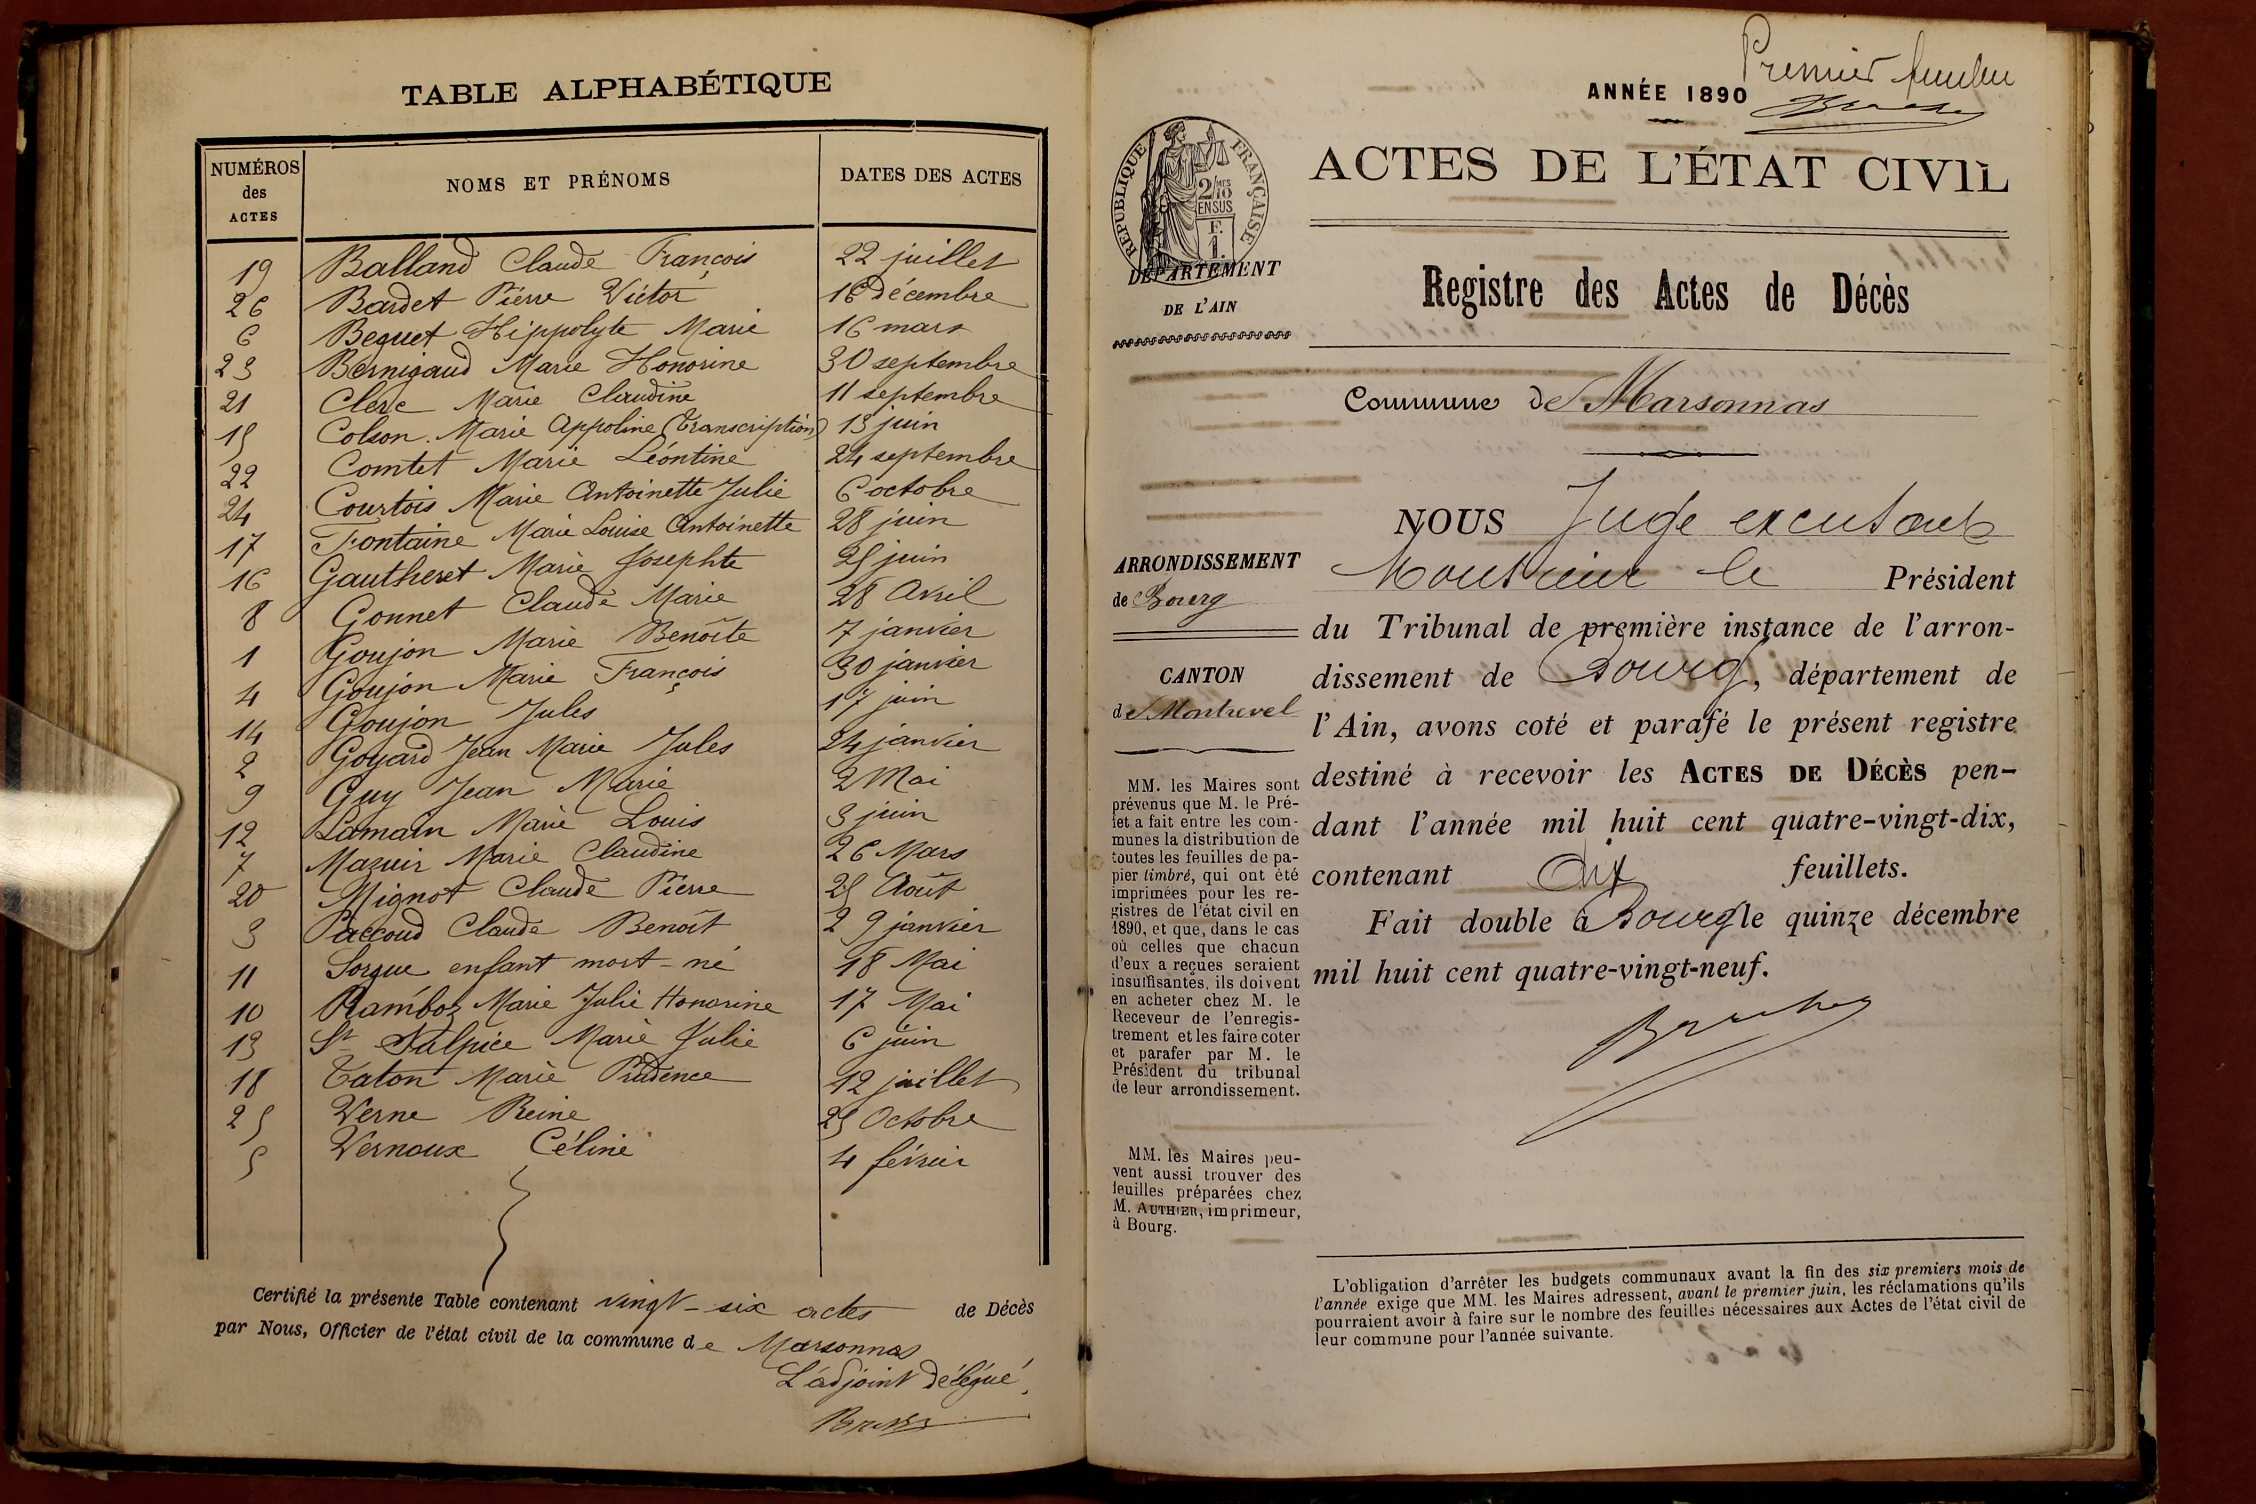 TABLE ALPHABÉTIQUE
NUMÉROS des ACTES NOMS ET PRÉNOMS DATES DES ACTES
19 Balland Claude François 22 juillet
26 Bardet Pierre Victor 16 décembre
6 Bequet Hippolyte Marie 16 mars
23 Bernigaud Marie Honorine 30 septembre
21 Clerc Marie Claudine 11 septembre
15 Colson Marie Appoline (Transcription) 13 juin
22 Comtet Marie Léontine 24 septembre
24 Courtois Marie Antoinette Julie 6 octobre
17 Fontaine Marie Louise Antoinette 28 juin
16 Gautheret Marie Josephte 25 juin
8 Gonnet Claude Marie 28 Avril
1 Goujon Marie Benoîte 7 janvier
4 Goujon Marie François 30 janvier
14 Goujon Jules 17 juin
2 Goyard Jean Marie Jules 24 janvier
9 Guy Jean Marie 2 Mai
12 Lamain Marie Louis 3 juin
7 Mazuir Marie Claudine 26 Mars
20 Mignot Claude Pierre 25 Août
3 Paccoud Claude Benoît 29 janvier
11 Sorgue enfant mort-né 18 Mai
10 Ramboz Marie Julie Honorine 17 Mai
13 St Sulpice Marie Julie 6 juin
18 Taton Marie Prudence 12 juillet
25 Verne Reine 25 Octobre
5 Vernoux Céline 4 février
Certifié la présente Table contenant vingt-six actes de Décès
par Nous, Officier de l'état civil de la commune de Marsonnas
L'adjoint délégué,
Premier feuillet
ANNÉE 1890
RÉPUBLIQUE FRANÇAISE
2/10 MES
EN SUS
F.
1.
ACTES DE L'ÉTAT CIVIL
DÉPARTEMENT
DE L'AIN
Registre des Actes de Décès
Commune de Marsonnas
ARRONDISSEMENT
de Bourg
CANTON
de Montrevel
MM. les Maires sont
prévenus que M. le Pré-
fet a fait entre les com-
munes la distribution de
toutes les feuilles de pa-
pier timbré, qui ont été
imprimées pour les re-
gistres de l'état civil en
1890, et que, dans le cas
où celles que chacun
d'eux a reçues seraient
insuffisantes, ils doivent
en acheter chez M. le
Receveur de l'enregis-
trement et les faire coter
et parafer par M. le
Président du tribunal
de leur arrondissement.
MM. les Maires peu-
vent aussi trouver des
feuilles préparées chez
M. AUTHIER, imprimeur,
à Bourg.
NOUS Juge excusant
Monsieur le Président
du Tribunal de première instance de l'arron-
dissement de Bourg, département de
l'Ain, avons coté et parafé le présent registre
destiné à recevoir les ACTES DE DÉCÈS pen-
dant l'année mil huit cent quatre-vingt-dix,
contenant dix feuillets.
Fait double à Bourg le quinze décembre
mil huit cent quatre-vingt-neuf.
L'obligation d'arrêter les budgets communaux avant la fin des six premiers mois de
l'année exige que MM. les Maires adressent, avant le premier juin, les réclamations qu'ils
pourraient avoir à faire sur le nombre des feuilles nécessaires aux Actes de l'état civil de
leur commune pour l'année suivante.